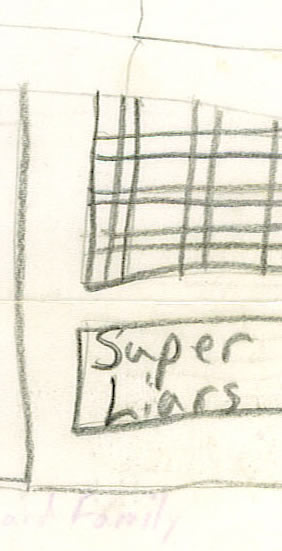 Super
Liars
Family